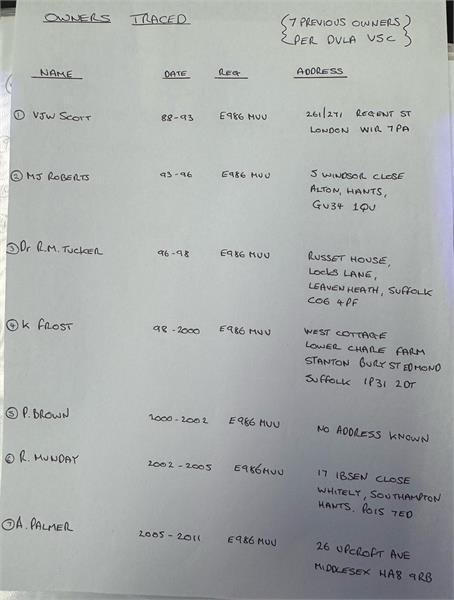 OWNERS TRACED
(7 PREVIOUS OWNERS)
{PER DVLA V5C}
NAME DATE REG ADDRESS
① VJW SCOTT 88-93 E986 MUU 261/271 REGENT ST
LONDON W1R 7PA
② MJ ROBERTS 93-96 E986 MUU 5 WINDSOR CLOSE
ALTON, HANTS,
GU34 1QU
③ Dr R.M. TUCKER 96-98 E986 MUU RUSSET HOUSE,
LOCKS LANE,
LEAVENHEATH, SUFFOLK
CO6 4PF
④ K FROST 98-2000 E986 MUU WEST COTTAGE
LOWER CHARE FARM
STANTON BURY ST EDMOND
SUFFOLK IP31 2DT
⑤ P. BROWN 2000-2002 E986 MUU NO ADDRESS KNOWN
⑥ R. MUNDAY 2002-2005 E986 MUU 17 IBSEN CLOSE
WHITELY, SOUTHAMPTON
HANTS. PO15 7ED
⑦ A. PALMER 2005-2011 E986 MUU 26 UPCROFT AVE
MIDDLESEX HA8 9RB